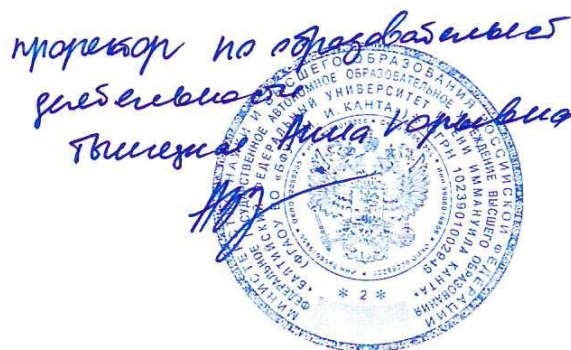 проректор по образовательной
деятельности
Анна Юрьевна
МИНИСТЕРСТВО НАУКИ И ВЫСШЕГО ОБРАЗОВАНИЯ РОССИЙСКОЙ ФЕДЕРАЦИИ
ФЕДЕРАЛЬНОЕ ГОСУДАРСТВЕННОЕ АВТОНОМНОЕ ОБРАЗОВАТЕЛЬНОЕ УЧРЕЖДЕНИЕ ВЫСШЕГО ОБРАЗОВАНИЯ
«БАЛТИЙСКИЙ ФЕДЕРАЛЬНЫЙ УНИВЕРСИТЕТ ИМЕНИ ИММАНУИЛА КАНТА»
(ФГАОУ ВО «БФУ ИМ. И. КАНТА») ОГРН 1023901002949
* 2 *